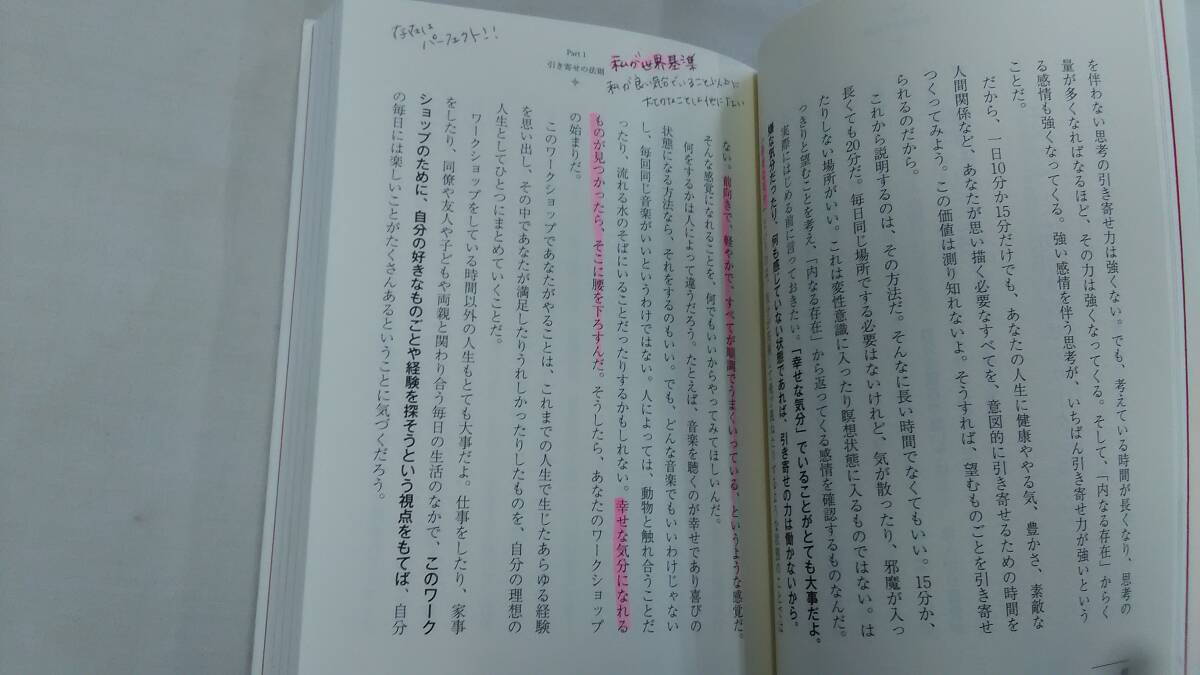 を伴わない思考の引き寄せ力は強くない。でも、考えている時間が長くなり、思考の
量が多くなればなるほど、その力は強くなってくる。そして、「内なる存在」からく
る感情も強くなってくる。強い感情を伴う思考が、いちばん引き寄せ力が強いという
ことだ。
だから、一日10分か15分だけでも、あなたの人生に健康ややる気、豊かさ、素敵な
人間関係など、あなたが思い描く必要なすべてを、意図的に引き寄せるための時間を
つくってみよう。この価値は測り知れないよ。そうすれば、望むものごとを引き寄せ
られるのだから。
これから説明するのは、その方法だ。そんなに長い時間でなくてもいい。15分か、
長くても20分だ。毎日同じ場所でする必要はないけれど、気が散ったり、邪魔が入っ
たりしない場所がいい。これは変性意識に入ったり瞑想状態に入るものではない。は
っきりと望むことを考え、「内なる存在」から返ってくる感情を確認するものなんだ。
実際にはじめる前に言っておきたい。「幸せな気分」でいることがとても大事だよ。
嫌な気分だったり、何も感じていない状態であれば、引き寄せの力は働かないから。
Part 1
引き寄せの法則
あなたは
パーフェクト!!
私が世界基準
私が良い気分でいること以上に
大切なことは他にない
ない。前向きで、軽やかで、すべてが順調でうまくいっている、というような感覚だ。
そんな感覚になれることを、何でもいいからやってみてほしいんだ。
何をするかは人によって違うだろう。たとえば、音楽を聴くのが幸せであり喜びの
状態になる方法なら、それをするのもいい。でも、どんな音楽でもいいわけじゃない
し、毎回同じ音楽がいいというわけではない。人によっては、動物と触れ合うことだ
ったり、流れる水のそばにいることだったりするかもしれない。幸せな気分になれる
ものが見つかったら、そこに腰を下ろすんだ。そうしたら、あなたのワークショップ
の始まりだ。
このワークショップであなたがやることは、これまでの人生で生じたあらゆる経験
を思い出し、その中であなたが満足したりうれしかったりしたものを、自分の理想の
人生としてひとつにまとめていくことだ。
ワークショップをしている時間以外の人生もとても大事だよ。仕事をしたり、家事
をしたり、同僚や友人や子どもや両親と関わり合う毎日の生活のなかで、このワーク
ショップのために、自分の好きなものごとや経験を探そうという視点をもてば、自分
の毎日には楽しいことがたくさんあるということに気づくだろう。